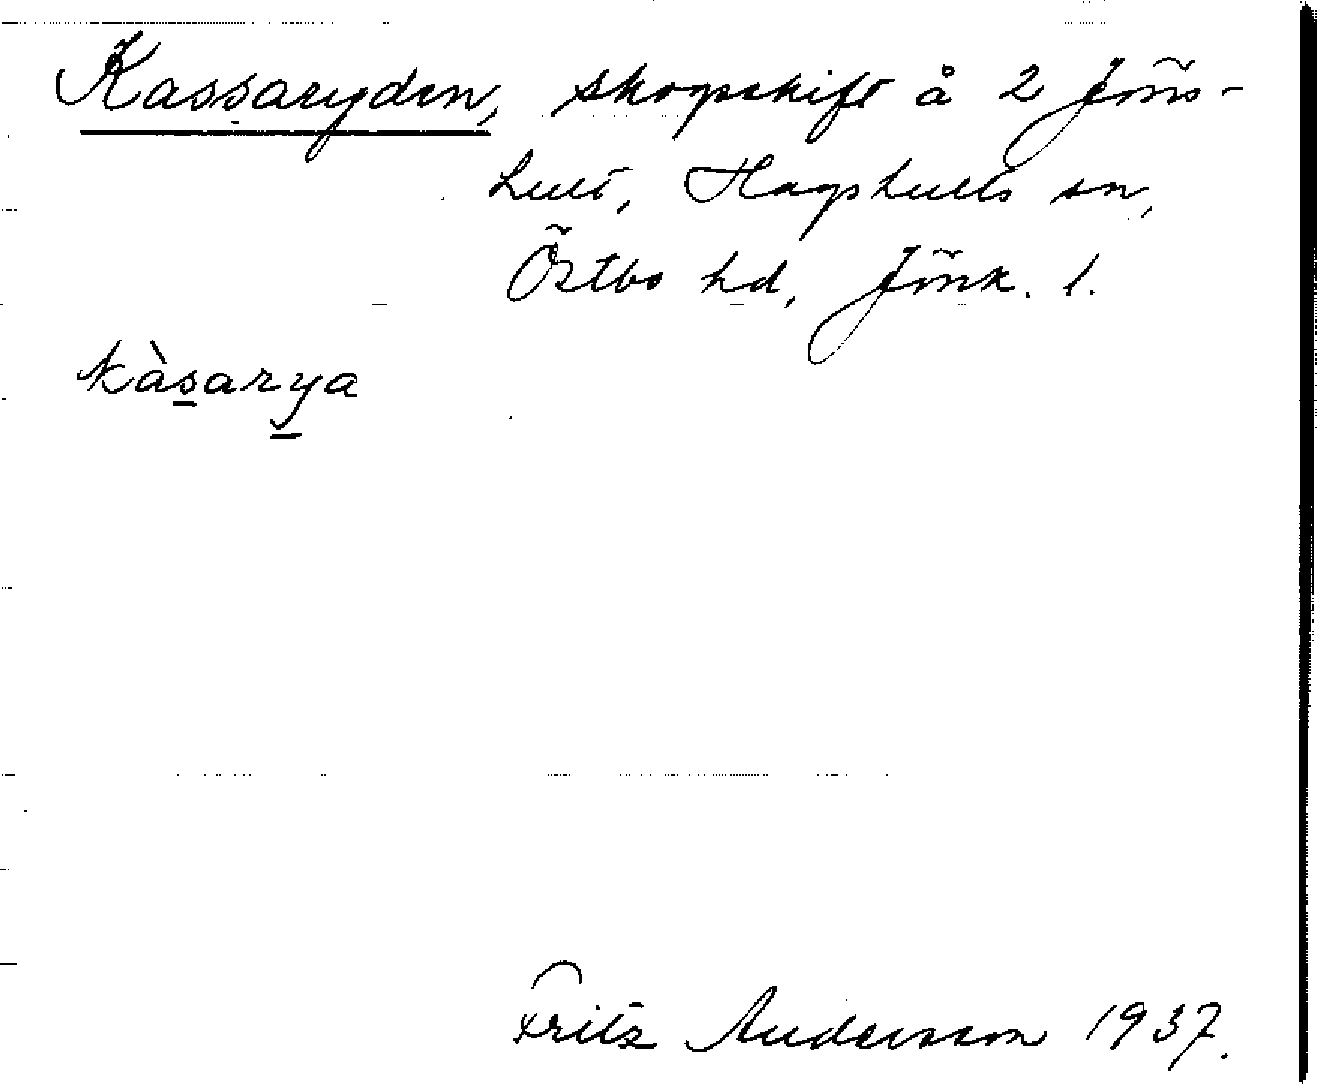 Kassaryden, skogsskift å 2 Jöns-
hult, Hagshults sn,
Östbo hd, Jönk. l.
kàsarya
Fritz Andersson 1937.